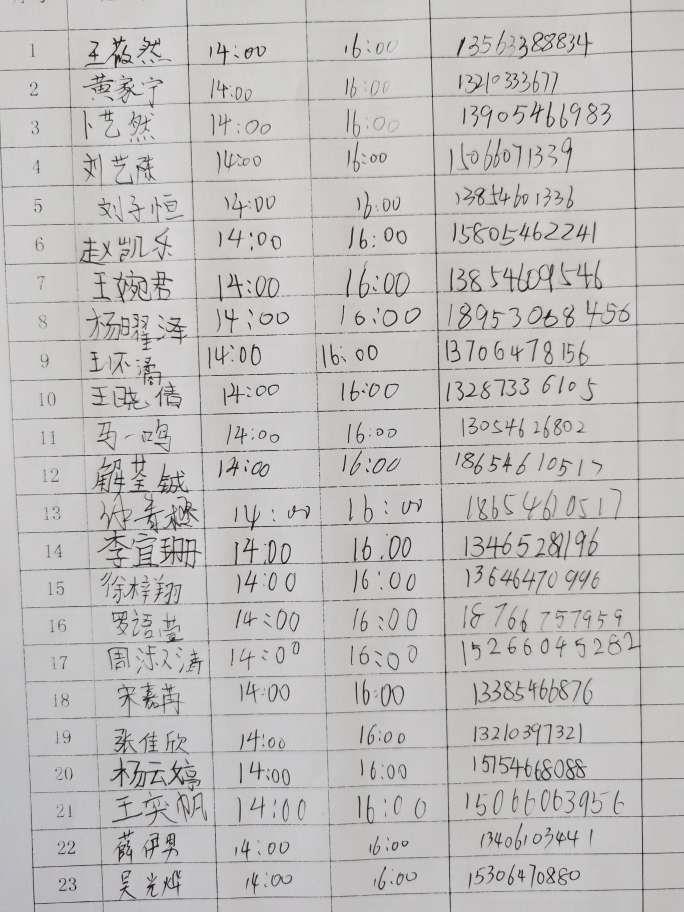 1 王筱然 14:00 16:00 13563388834
2 黄家宁 14:00 16:00 13210333677
3 卜艺然 14:00 16:00 13905466983
4 刘艺 14:00 16:00 15066071339
5 刘子恒 14:00 16:00 13854601336
6 赵凯乐 14:00 16:00 15805462241
7 王婉君 14:00 16:00 13854609546
8 杨曜泽 14:00 16:00 18953068456
9 王怀 14:00 16:00 13706478156
10 王晓倩 14:00 16:00 13287336105
11 马一鸣 14:00 16:00 13054626802
12 解荃铖 14:00 16:00 18654610517
13 14:00 16:00 18654610517
14 李宜珊 14:00 16:00 13465289196
15 徐梓翔 14:00 16:00 13646470996
16 罗语萱 14:00 16:00 18766757959
17 周 涛 14:00 16:00 15266045282
18 宋嘉芮 14:00 16:00 13385466876
19 张佳欣 14:00 16:00 13210397321
20 杨云婷 14:00 16:00 15754668088
21 王奕帆 14:00 16:00 15066063956
22 薛伊男 14:00 16:00 13406103441
23 吴光烨 14:00 16:00 15306470880